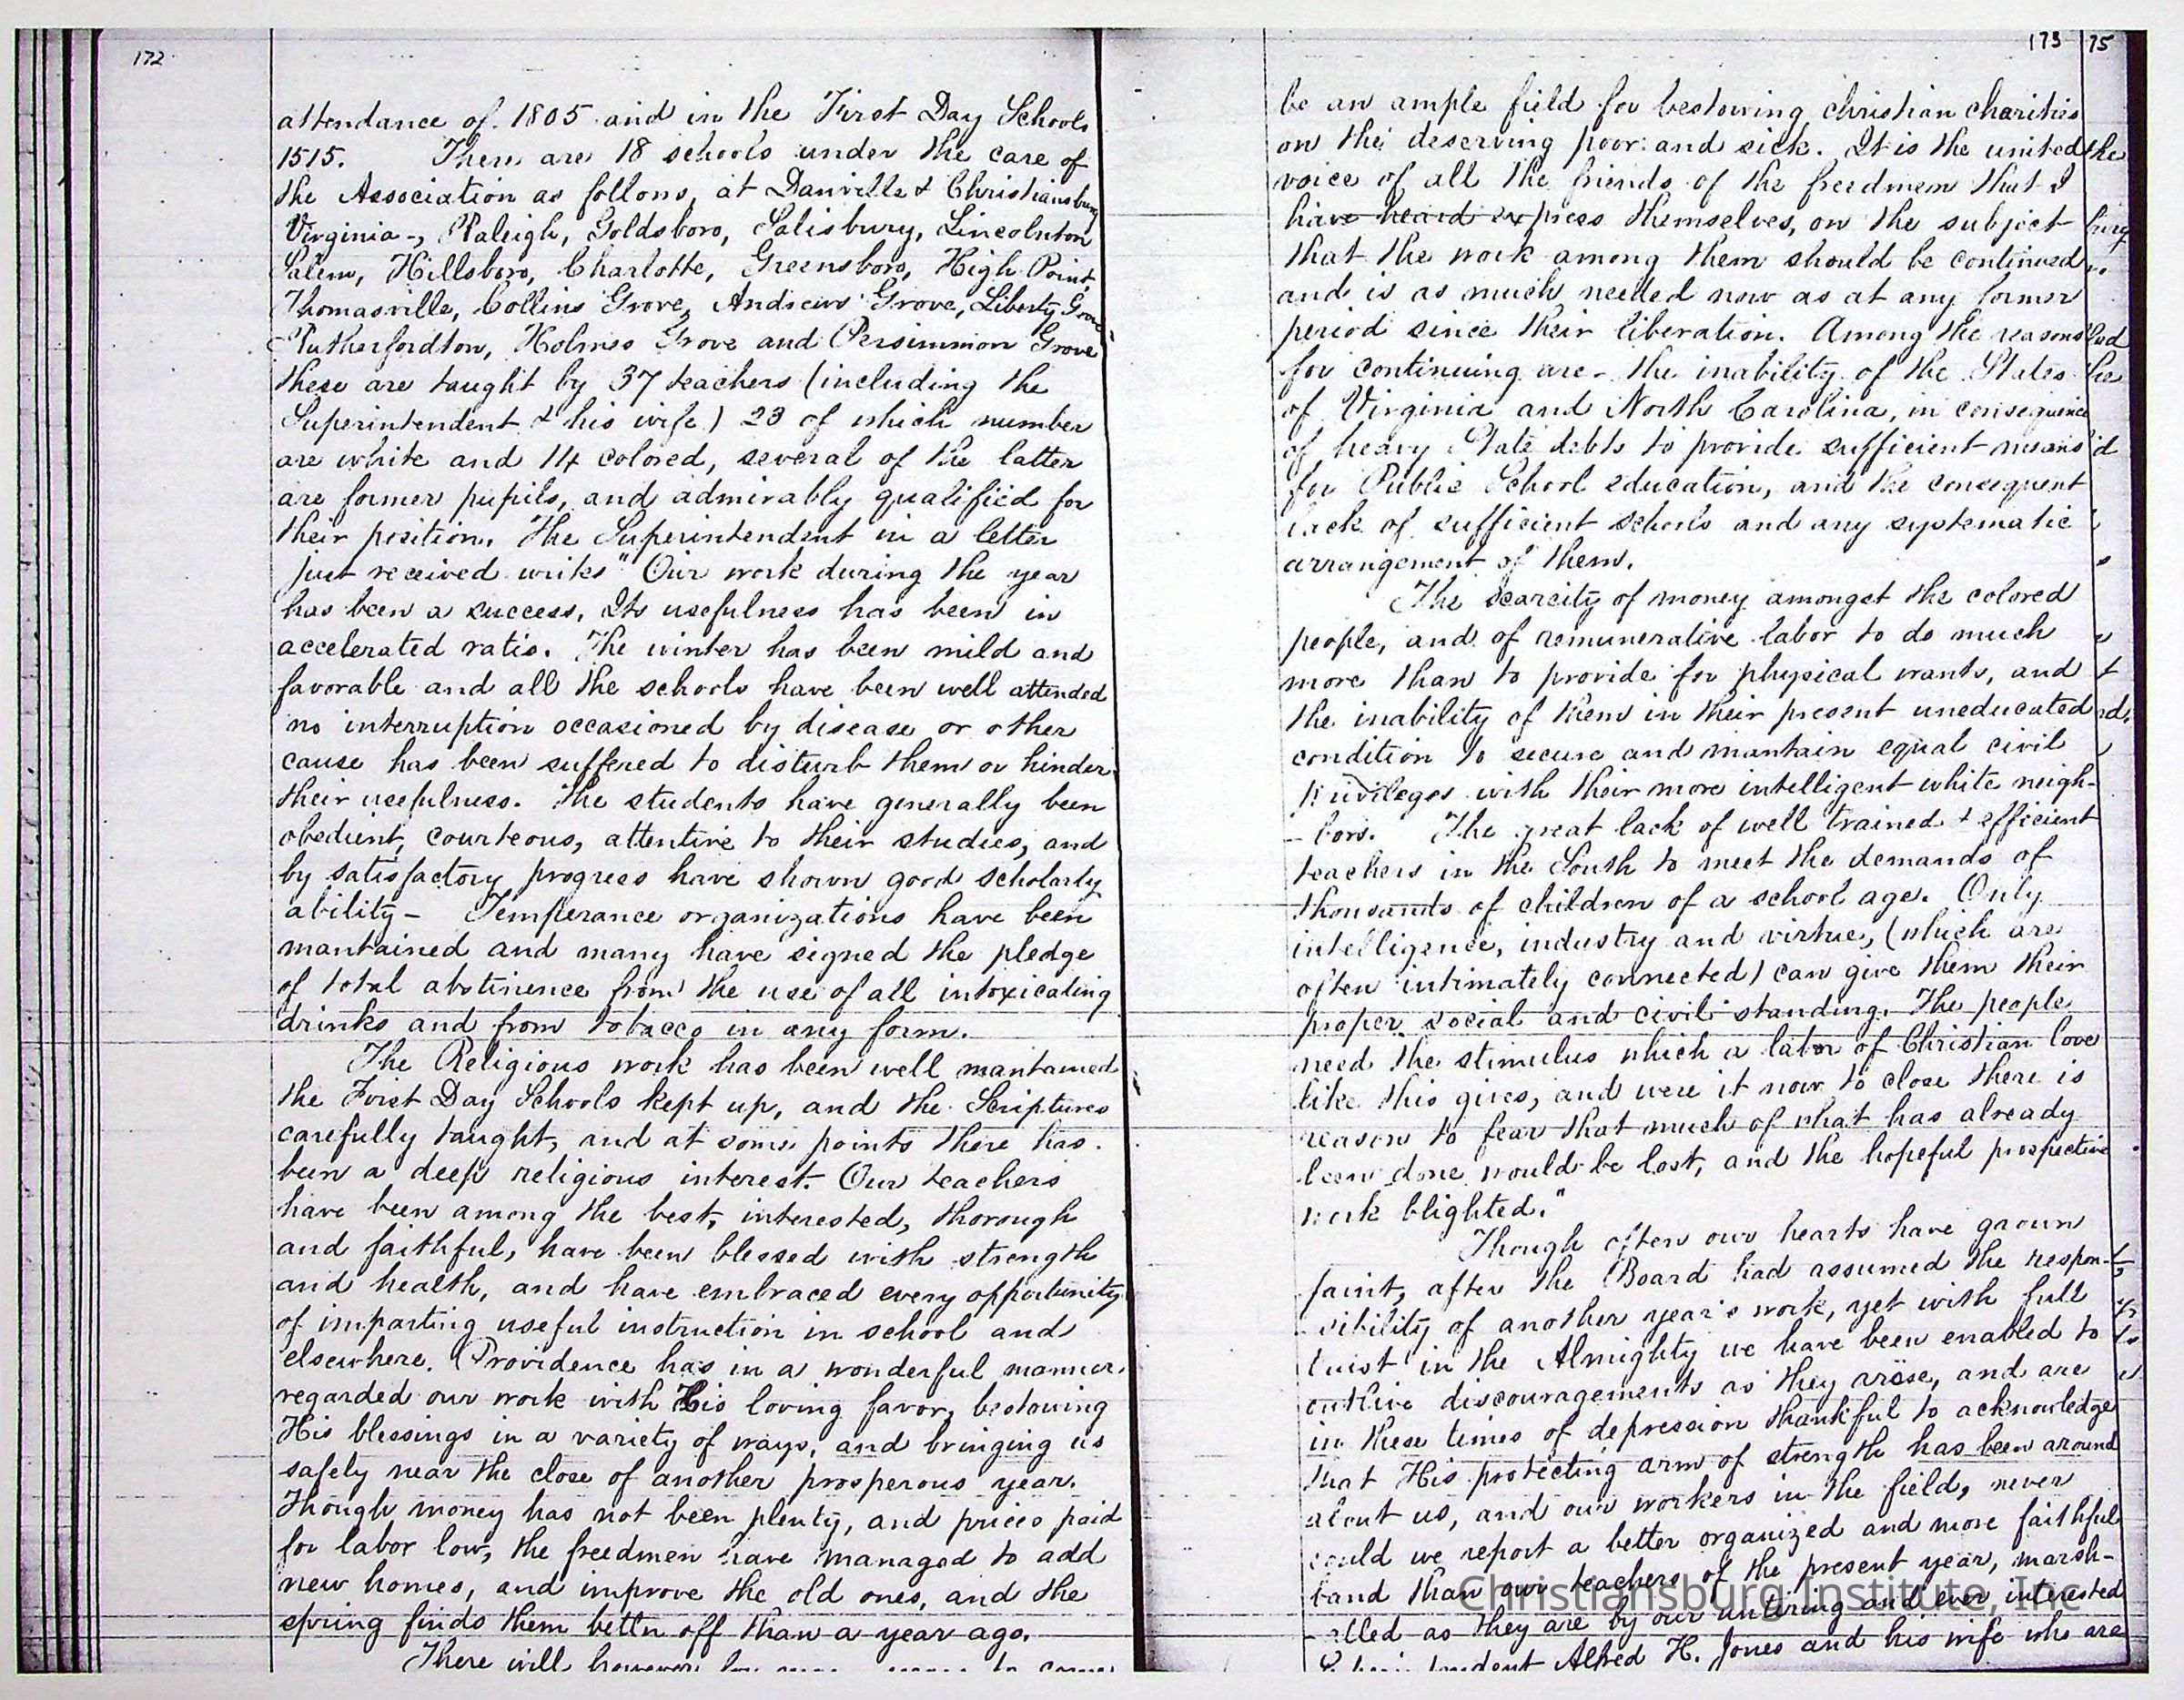 172
attendance of 1805 and in the First Day Schools
1515. There are 18 schools under the care of
the Association as follows, at Danville & Christiansburg
Virginia -, Raleigh, Goldsboro, Salisbury, Lincolnton
Salem, Hillsboro, Charlotte, Greensboro, High Point,
Thomasville, Collins Grove, Andrews Grove, Liberty Grove
Rutherfordton, Holmes Grove and Persimmon Grove
these are taught by 37 teachers (including the
Superintendent & his wife) 23 of which number
are white and 14 colored, several of the latter
are former pupils, and admirably qualified for
their position. The Superintendent in a letter
just received writes "Our work during the year
has been a success, Its usefulness has been in
accelerated ratio. The winter has been mild and
favorable and all the schools have been well attended
no interruption occasioned by disease or other
cause has been suffered to disturb them or hinder
their usefulness. The students have generally been
obedient, courteous, attentive to their studies, and
by satisfactory progress have shown good scholarly
ability - Temperance organizations have been
mantained and many have signed the pledge
of total abstinence from the use of all intoxicating
drinks and from tobacco in any form.
The Religious work has been well mantained
the First Day Schools kept up, and the Scriptures
carefully taught, and at some points there has
been a deep religious interest. Our teachers
have been among the best, interested, thorough
and faithful, have been blessed with strength
and health, and have embraced every opportunity
of imparting useful instruction in school and
elsewhere. Providence has in a wonderful manner
regarded our work with His loving favor, bestowing
His blessings in a variety of ways, and bringing us
safely near the close of another prosperous year.
Though money has not been plenty, and prices paid
for labor low, the freedmen have managed to add
new homes, and improve the old ones, and the
spring finds them better off than a year ago.
There will however
173
be an ample field for bestowing christian charities
on the deserving poor and sick. It is the united
voice of all the friends of the freedmen that I
have heard express themselves, on the subject
that the work among them should be continued
and is as much needed now as at any former
period since their liberation. Among the reasons
for continuing are - the inability of the States
of Virginia and North Carolina, in consequence
of heavy State debts to provide sufficient means
for Public School education, and the consequent
lack of sufficient schools and any systematic
arrangement of them.
The scarcity of money amongst the colored
people, and of remunerative labor to do much
more than to provide for physical wants, and
the inability of them in their present uneducated
condition to secure and mantain equal civil
privileges with their more intelligent white neigh-
- bors. The great lack of well trained & efficient
teachers in the South to meet the demands of
thousands of children of a school age. Only
intelligence, industry and virtue, (which are
often intimately connected) can give them their
proper social and civil standing. The people
need the stimulus which a labor of Christian love
like this gives, and were it now to close there is
reason to fear that much of what has already
been done would be lost, and the hopeful prospective
work blighted."
Though often our hearts have grown
faint, after the Board had assumed the respon-
- sibility of another year's work, yet with full
trust in the Almighty we have been enabled to
outlive discouragements as they arose, and are
in these times of depression thankful to acknowledge
that His protecting arm of strength has been around
about us, and our workers in the field, never
could we report a better organized and more faithful
band than our teachers of the present year, marsh-
- alled as they are by our untiring and ever interested
Superintendent Alfred H. Jones and his wife who are
75
the
Christiansburg Institute, Inc